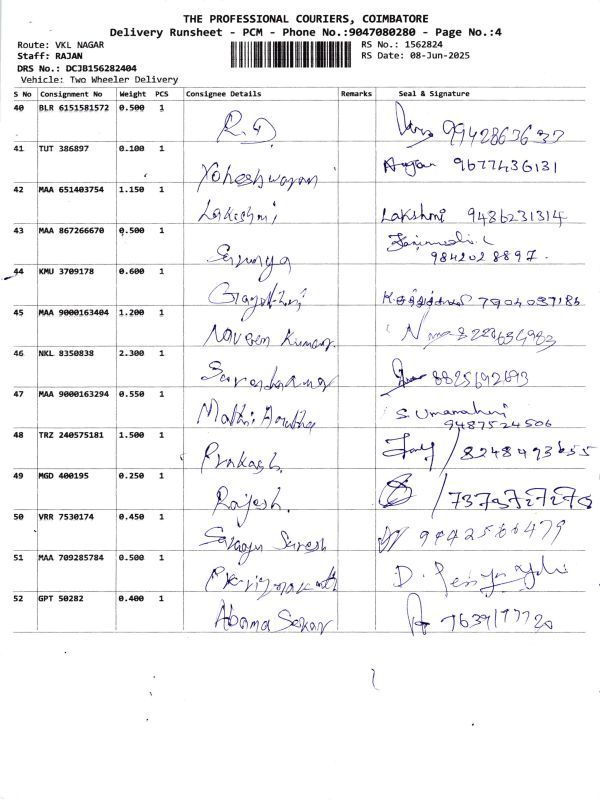 THE PROFESSIONAL COURIERS, COIMBATORE
Delivery Runsheet - PCM - Phone No.:9047080280 - Page No.:4
Route: VKL NAGAR RS No.: 1562824
Staff: RAJAN RS Date: 08-Jun-2025
DRS No.: DCJB156282404
Vehicle: Two Wheeler Delivery
S No Consignment No Weight PCS Consignee Details Remarks Seal & Signature
40 BLR 6151581572 0.500 1
41 TUT 386897 0.100 1 Yoheshwaran 9677436131
42 MAA 651403754 1.150 1 Lakshmi Lakshmi 9486231314
43 MAA 867266670 0.500 1 9842028897.
44 KMU 3709178 0.600 1
45 MAA 9000163404 1.200 1 Naveen Kumar.
46 NKL 8350838 2.300 1 8825692693
47 MAA 9000163294 0.550 1 S. Umamaheswari
9487524506
48 TRZ 240575181 1.500 1 Prakash. / 8248493655
49 MGD 400195 0.250 1 Rajesh.
50 VRR 7530174 0.450 1 Suresh
51 MAA 709285784 0.500 1
52 GPT 50282 0.400 1 7639177720